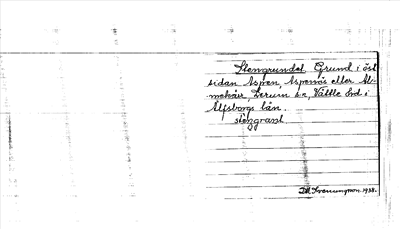 Stengrundet. Grund i öst
sidan Aspen, Aspenäs eller Al-
mekärr, Lerum sn, Vättle hd i
Älfsborgs län.
stengrant
1938.